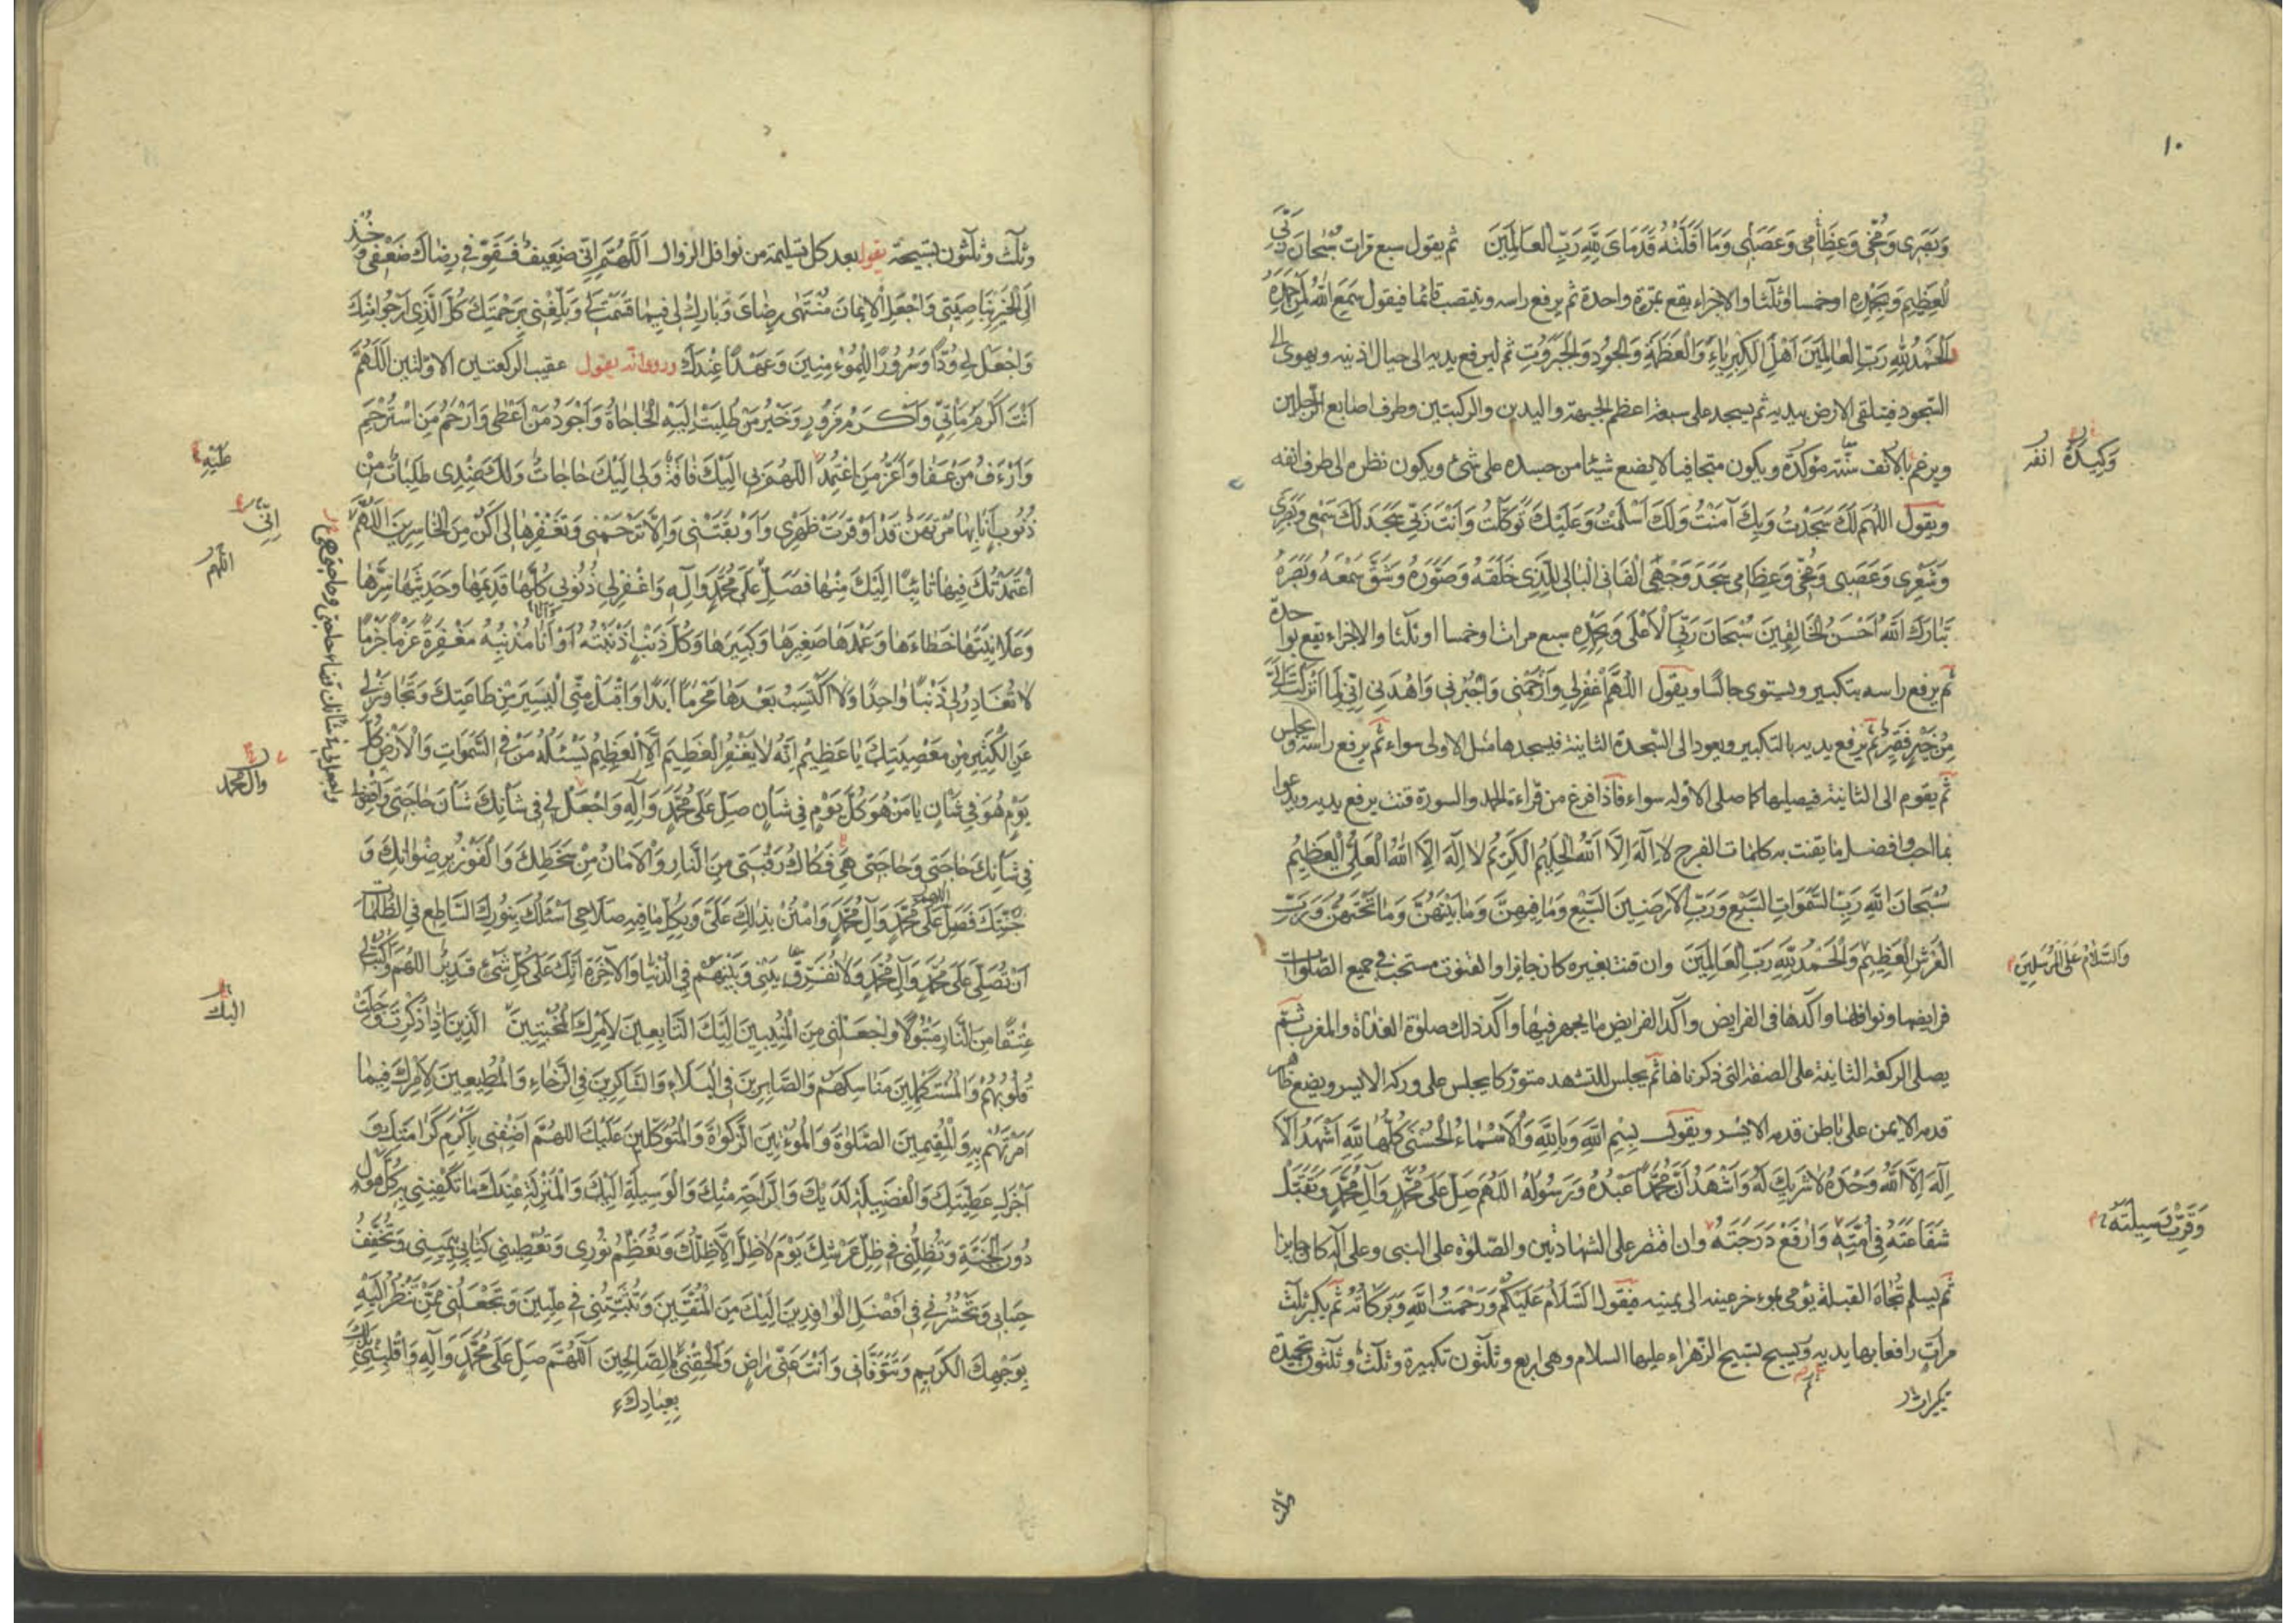 ١٠
وَبَصَرِى وَمُخِّى وَعِظَامِى وَعَصَبِى وَمَا اَقَلَّتْهُ قَدَمَاىَ لِلّٰهِ رَبِّ العَالَمِيْنَ ثم يقول سبع مرات سُبْحَانَ رَبِّىَ
العَظِيْمِ وَبِحَمْدِهِ او خمسا او ثلثا والاجزاء يقع بمرة واحدة ثم يرفع راسه وينتصب قائما فيقول سَمِعَ اللهُ لِمَنْ حَمِدَهُ
اَلْحَمْدُ لِلّٰهِ رَبِّ الْعَالَمِيْنَ اَهْلِ الْكِبْرِيَاءِ وَالْعَظَمَةِ وَالْجُوْدِ وَالْجَبَرُوْتِ ثم ليرفع يديه الى حيال اذنيه ويهوى الى
السجود فيتلقى الارض بيديه ثم يسجد على سبعة اعظم الجبهة واليدين والركبتين وطرف اصابع الرجلين
ويرغم بالانف سنّة مؤكدة ويكون متجافيا لا يضع شيئا من جسده على شئ ويكون نظره الى طرف انفه
وَكِيْدَةٌ انفه
ويقول اللهُمَّ لَكَ سَجَدْتُ وَبِكَ آمَنْتُ وَلَكَ اَسْلَمْتُ وَعَلَيْكَ تَوَكَّلْتُ وَاَنْتَ رَبِّى سَجَدَ لَكَ سَمْعِى وَبَصَرِى
وَشَعْرِى وَعَصَبِى وَمُخِّى وَعِظَامِى سَجَدَ وَجْهِىَ الْفَانِى الْبَالِى لِلَّذِى خَلَقَهُ وَصَوَّرَهُ وَشَقَّ سَمْعَهُ وَبَصَرَهُ
تَبَارَكَ اللهُ اَحْسَنُ الْخَالِقِيْنَ سُبْحَانَ رَبِّىَ الْاَعْلَى وَبِحَمْدِهِ سبع مرات او خمسا او ثلثا والاجزاء يقع بواحدة
ثم يرفع راسه بتكبير ويستوى جالسا ويقول اَللّٰهُمَّ اغْفِرْلِى وَارْحَمْنِى وَاجْبُرْنِى وَاهْدِنِى اِنِّى لِمَا اَنْزَلْتَ اِلَىَّ
مِنْ خَيْرٍ فَقِيْرٌ ثم يرفع يديه بالتكبير ويعود الى السجدة الثانية فيسجدها مثل الاولى سواء ثم يرفع راسه ويجلس
ثم يقوم الى الثانية فيصليها كما صلى الاولى سواء فاذا فرغ من قراءة الحمد والسورة قنت يرفع يديه ويدعوا
بما احب وافضل ما يقنت به كلمات الفرج لَا اِلٰهَ اِلَّا اللهُ الْحَلِيْمُ الْكَرِيْمُ لَا اِلٰهَ اِلَّا اللهُ الْعَلِىُّ الْعَظِيْمُ
سُبْحَانَ اللهِ رَبِّ السَّمٰوَاتِ السَّبْعِ وَرَبِّ الْاَرَضِيْنَ السَّبْعِ وَمَا فِيْهِنَّ وَمَا بَيْنَهُنَّ وَمَا تَحْتَهُنَّ وَرَبِّ
الْعَرْشِ الْعَظِيْمِ وَالْحَمْدُ لِلّٰهِ رَبِّ الْعَالَمِيْنَ وان قنت بغيره كان جايزا والقنوت مستحب فى جميع الصلوات
وَالسَّلَامُ عَلَى الْمُرْسَلِيْنَ
فرايضها ونوافلها واكدها فى الفرايض واكد الفرايض ما يجهر فيها واكد ذلك صلوة الغداة والمغرب ثم
يصلى الركعة الثانية على الصفة التى ذكرناها ثم يجلس للتشهد متوركا يجلس على وركه الايسر ويضع ظاهر
قدمه الايمن على باطن قدمه الايسر ويقول بِسْمِ اللهِ وَبِاللهِ وَالْاَسْمَاءُ الْحُسْنٰى كُلُّهَا لِلّٰهِ اَشْهَدُ اَلَّا
اِلٰهَ اِلَّا اللهُ وَحْدَهُ لَا شَرِيْكَ لَهُ وَاَشْهَدُ اَنَّ مُحَمَّدًا عَبْدُهُ وَرَسُوْلُهُ اللهُمَّ صَلِّ عَلَى مُحَمَّدٍ وَآلِ مُحَمَّدٍ وَتَقَبَّلْ
شَفَاعَتَهُ فِى اُمَّتِهِ وَارْفَعْ دَرَجَتَهُ وان اقتصر على الشهادتين والصلوة على النبى وعلى آله كان جايزا
وَقَرِّبْ وَسِيْلَتَهُ
ثم يسلم تجاه القبلة يومى بموخر عينه الى يمينه فيقول اَلسَّلَامُ عَلَيْكُمْ وَرَحْمَتُ اللهِ وَبَرَكَاتُهُ ثم يكبر ثلث
مرات رافعا بها يديه ويسبح تسبيح الزهراء عليها السلام وهى اربع وثلثون تكبيرة وثلث وثلثون تحميدة
تكبيرات
وثلث وثلثون تسبيحة يقول بعد كل تسليمة من نوافل الزوال اَللّٰهُمَّ اِنِّى ضَعِيْفٌ فَقَوِّ فِى رِضَاكَ ضَعْفِى وَخُذْ
اِلَى الْخَيْرِ بِنَاصِيَتِى وَاجْعَلِ الْاِيْمَانَ مُنْتَهٰى رِضَاىَ وَبَارِكْ لِى فِيْمَا قَسَمْتَ لِى وَبَلِّغْنِى بِرَحْمَتِكَ كُلَّ الَّذِى اَرْجُوْا مِنْكَ
وَاجْعَلْ لِى وُدًّا وَسُرُوْرًا لِلْمُؤْمِنِيْنَ وَعَهْدًا عِنْدَكَ وروى انه يقول عقيب الركعتين الاولتين اَللّٰهُمَّ
اَنْتَ اَكْرَمُ مَأْتِىٍّ وَاَكْرَمُ مَزُوْرٍ وَخَيْرُ مَنْ طُلِبَتْ اِلَيْهِ الْحَاجَاةُ وَاَجْوَدُ مَنْ اَعْطٰى وَاَرْحَمُ مَنِ اسْتُرْحِمَ
وَاَرْءَفُ مَنْ عَفَا وَاَعَزُّ مَنِ اعْتُمِدَ اللهُمَّ بِى اِلَيْكَ فَاقَةٌ وَلِى اِلَيْكَ حَاجَاتٌ وَلَكَ عِنْدِى طَلِبَاتٌ مِنْ
ذُنُوْبٍ اَنَا بِهَا مُرْتَهَنٌ قَدْ اَوْقَرَتْ ظَهْرِى وَاَوْبَقَتْنِى وَاِلَّا تَرْحَمْنِى وَتَغْفِرْهَا لِى اَكُنْ مِنَ الْخَاسِرِيْنَ اَللّٰهُمَّ
اِنِّى
اللهم
اعْتَمَدْتُكَ فِيْهَا تَائِبًا اِلَيْكَ مِنْهَا فَصَلِّ عَلَى مُحَمَّدٍ وَآلِهِ وَاغْفِرْ لِى ذُنُوْبِى كُلَّهَا قَدِيْمَهَا وَحَدِيْثَهَا سِرَّهَا
وَعَلَانِيَتَهَا خَطَاءَهَا وَعَمْدَهَا صَغِيْرَهَا وَكَبِيْرَهَا وَكُلَّ ذَنْبٍ اَذْنَبْتُهُ اَوْ اَنَا مُذْنِبُهُ مَغْفِرَةً عَزْمًا جَزْمًا
لَا تُغَادِرُ لِى ذَنْبًا وَاحِدًا وَلَا اَكْتَسِبُ بَعْدَهَا مُحَرَّمًا اَبَدًا وَاقْبَلْ مِنِّى الْيَسِيْرَ مِنْ طَاعَتِكَ وَتَجَاوَزْ لِى
عَنِ الْكَثِيْرِ مِنْ مَعْصِيَتِكَ يَا عَظِيْمُ اِنَّهُ لَا يَغْفِرُ الْعَظِيْمَ اِلَّا الْعَظِيْمُ يَسْئَلُهُ مَنْ فِى السَّمٰوَاتِ وَالْاَرْضِ كُلَّ
يَوْمٍ هُوَ فِى شَأْنٍ يَا مَنْ هُوَ كُلَّ يَوْمٍ فِى شَأْنٍ صَلِّ عَلَى مُحَمَّدٍ وَآلِهِ وَاجْعَلْ لِى فِى شَأْنِكَ شَأْنَ حَاجَتِى وَاقْضِ
وآل محمد
فِى شَأْنِكَ حَاجَتِى وَحَاجَتِى هِىَ فَكَاكُ رَقَبَتِى مِنَ النَّارِ وَالْاَمَانُ مِنْ سَخَطِكَ وَالْفَوْزُ بِرِضْوَانِكَ وَ
جَنَّتِكَ فَصَلِّ عَلَى مُحَمَّدٍ وَآلِ مُحَمَّدٍ وَامْنُنْ بِذٰلِكَ عَلَىَّ وَبِكُلِّ مَا فِيْهِ صَلَاحِى اَسْئَلُكَ بِنُوْرِكَ السَّاطِعِ فِى الظُّلُمَاتِ
اَنْ تُصَلِّىَ عَلَى مُحَمَّدٍ وَآلِ مُحَمَّدٍ وَلَا تُفَرِّقْ بَيْنِى وَبَيْنَهُمْ فِى الدُّنْيَا وَالْآخِرَةِ اِنَّكَ عَلَى كُلِّ شَىْءٍ قَدِيْرٌ اللهُمَّ وَاكْتُبْ لِى
عِتْقًا مِنَ النَّارِ مَبْتُوْلًا وَاجْعَلْنِى مِنَ الْمُنِيْبِيْنَ اِلَيْكَ التَّابِعِيْنَ لِاَمْرِكَ الْمُخْبِتِيْنَ الَّذِيْنَ اِذَا ذُكِرْتَ وَجِلَتْ
اليك
قُلُوْبُهُمْ وَالْمُسْتَكْمِلِيْنَ مَنَاسِكَهُمْ وَالصَّابِرِيْنَ فِى الْبَلَاءِ وَالشَّاكِرِيْنَ فِى الرَّخَاءِ وَالْمُطِيْعِيْنَ لِاَمْرِكَ فِيْمَا
اَمَرْتَهُمْ بِهِ وَالْمُقِيْمِيْنَ الصَّلٰوةَ وَالْمُؤْتِيْنَ الزَّكٰوةَ وَالْمُتَوَكِّلِيْنَ عَلَيْكَ اللهُمَّ اَضِفْنِى بِاَكْرَمِ كَرَامَتِكَ وَ
اَجْزِلْ عَطِيَّتَكَ وَالْفَضِيْلَةِ لَدَيْكَ وَالرَّاحَةِ مِنْكَ وَالْوَسِيْلَةِ اِلَيْكَ وَالْمَنْزِلَةِ عِنْدَكَ مَا تَكْفِيْنِى بِهِ كُلَّ هَوْلٍ
دُوْنَ الْجَنَّةِ وَتُظِلُّنِى فِى ظِلِّ عَرْشِكَ يَوْمَ لَا ظِلَّ اِلَّا ظِلُّكَ وَتُعَظِّمُ نُوْرِى وَتُعْطِيْنِى كِتَابِى بِيَمِيْنِى وَتُخَفِّفُ
حِسَابِى وَتَحْشُرُنِى فِى اَفْضَلِ الْوَافِدِيْنَ اِلَيْكَ مِنَ الْمُتَّقِيْنَ وَتُثَبِّتُنِى فِى عِلِّيِّيْنَ وَتَجْعَلُنِى مِمَّنْ تَنْظُرُ اِلَيْهِ
بِوَجْهِكَ الْكَرِيْمِ وَتَتَوَفَّانِى وَاَنْتَ عَنِّى رَاضٍ وَاَلْحِقْنِى بِالصَّالِحِيْنَ اَللّٰهُمَّ صَلِّ عَلَى مُحَمَّدٍ وَآلِهِ وَاقْلِبْنِى بِذٰلِكَ
بِعِبَادِكَ